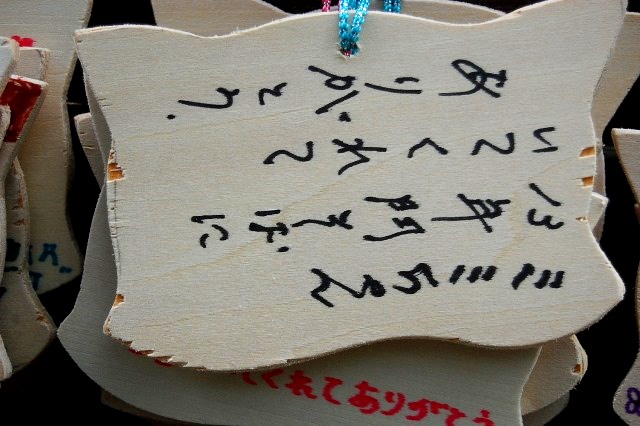 ミミちゃん
13年間そばに
いてくれて
ありがとう。
くれてありがとう